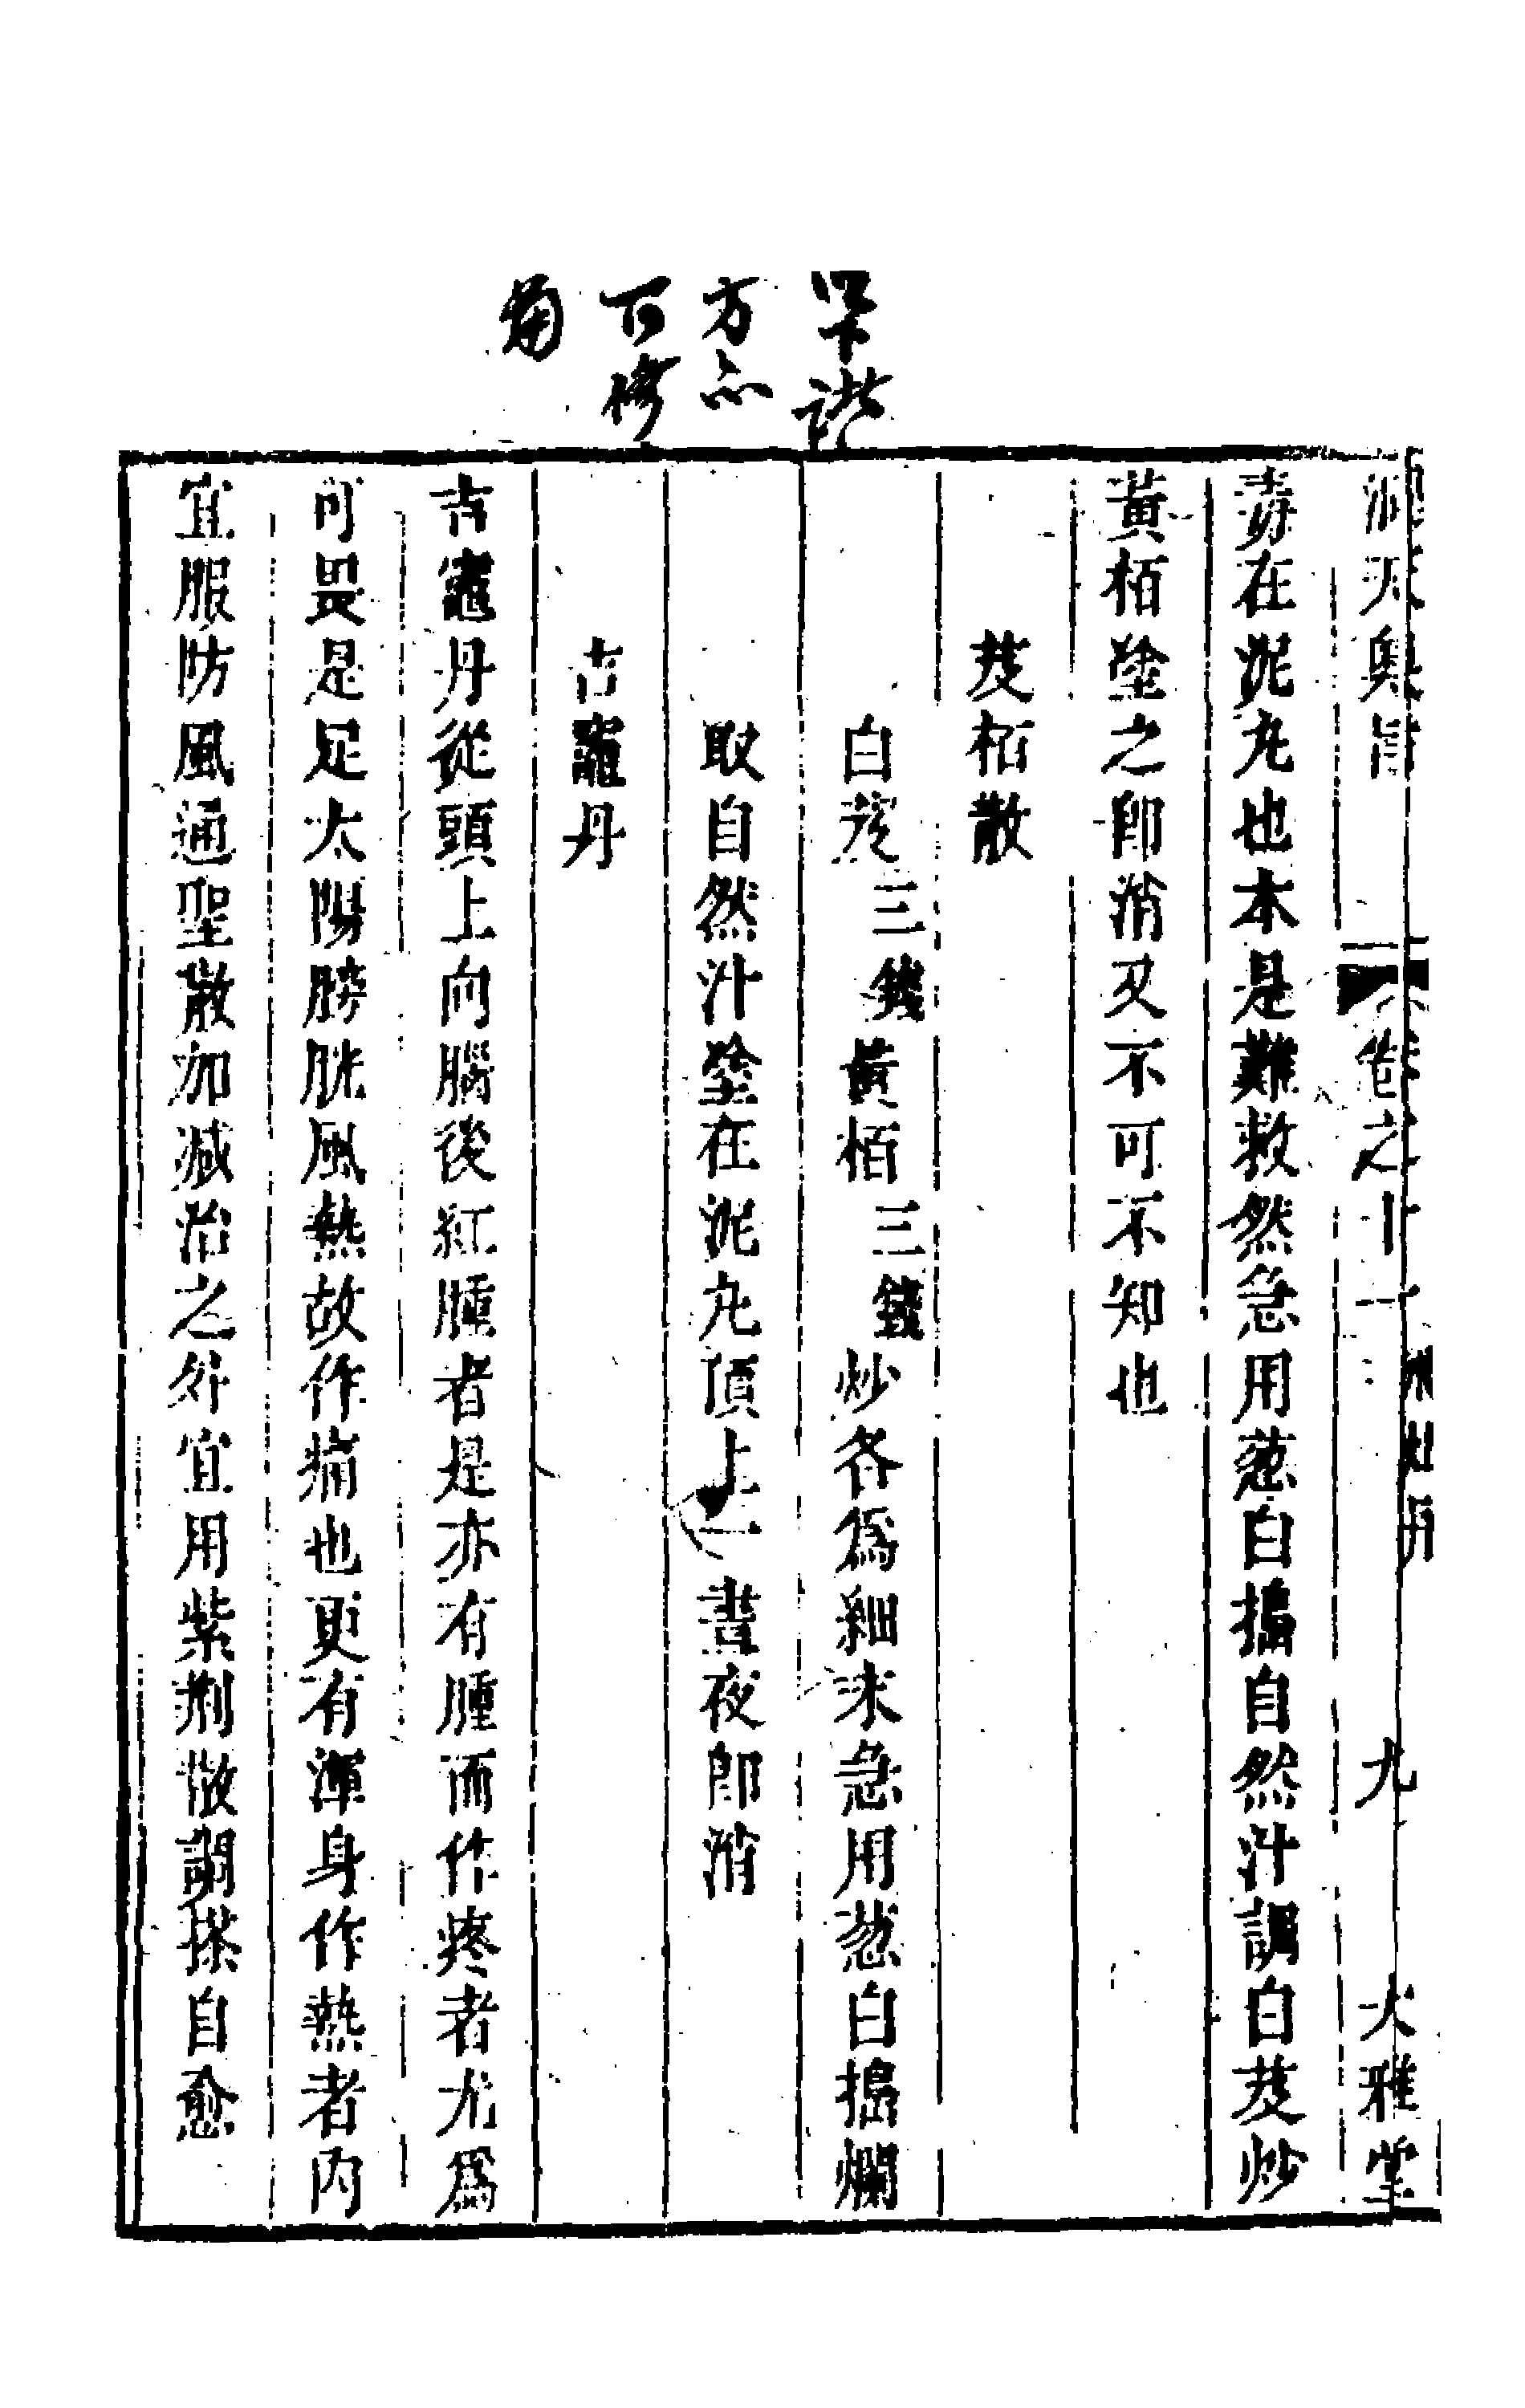 以下諸
方亦
洞天奧旨 卷之十一 九 大雅堂
毒在泥丸也本是難救然急用葱白搗自然汁調白芨炒
黃栢塗之卽消又不可不知也
芨栢散
白芨三錢黃栢三錢炒各爲細末急用葱白搗爛
取自然汁塗在泥丸頂上一晝夜卽消
吉竈丹
吉竈丹從頭上向腦後紅腫者是亦有腫而作疼者尤爲
可畏是足太陽膀胱風熱故作痛也更有渾身作熱者內
宜服防風通聖散加減治之外宜用紫荆散調搽自愈